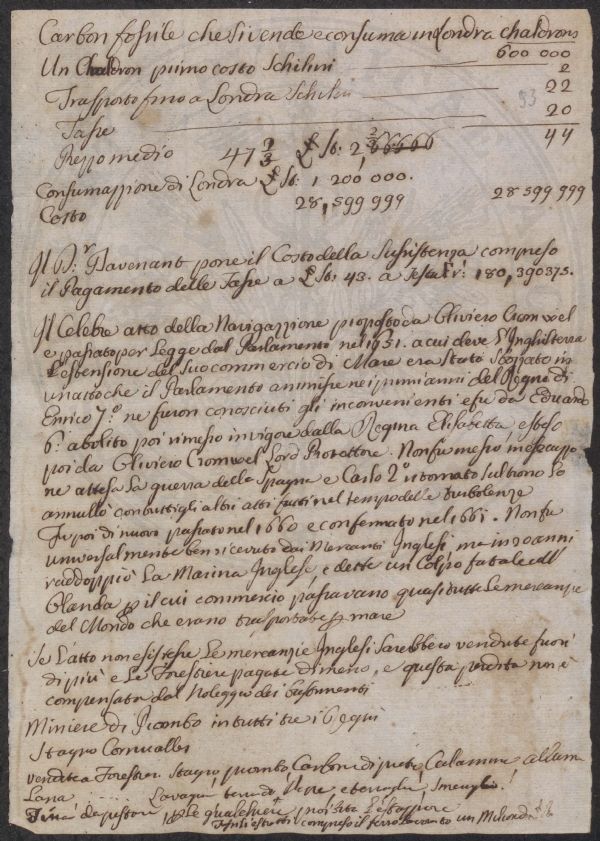 Carbon fossile che si vende e consuma in Londra chaldrons
600 000
Un Chaldron primo costo Schilini 2
Trasporto fino a Londra Schilini 22
93
Tasse 20
44
Prezzo medio 47 1/3 St: 2
Consumazzione di Londra St: 1 200,000.
Costo 28,599 999 28 599 999
Il Dr. Davenant pone il Costo della Susistenza compreso
il Pagamento delle Tasse a St: 43. a Testa 180,390375.
Il Celebre atto della Navigazzione proposto da Oliviero Cromwel
e passato per Legge dal Parlamento nel 1651. a cui deve l'Inghilterra
l'estensione del suo commercio di Mare era stato abozzato in
un atto che il Parlamento ammise nei primi anni del Regno di
Enrico 7.o ne furon conosciuti gli inconvenienti e fu da Eduardo
6.o abolito poi rimesso in vigore dalla Regina Elisabetta, esteso
poi da Oliviero Cromwel Lord Protettore. Non fu messo in esecuzzio
ne attesa la guerra delle Spagne e Carlo 2.o ritornato sul trono lo
annullò con tutti gli altri atti fatti nel tempo delle turbolenze
Fu poi di nuovo passato nel 1660 e confermato nel 1661. Non fu
universalmente ben ricevuto dai Mercanti Inglesi, ma in 20 anni
raddoppiò La Marina Inglese, e dette un Colpo fatale all'
Olanda p il cui commercio passavano quasi tutte le mercanzie
del Mondo che erano trasportate p mare
Se l'atto non esistesse Le mercanzie Inglesi sarebbero vendute fuori
di più e Le Forestiere pagate di meno, e questa perdita non è
compensata dal Noleggio dei bastimenti
Miniere di Piombo in tutti tre i Regni
Stagno Cornualles
vendita a Forestieri Stagno, piombo, Carbon di pietra, Calamina, allume
Lana ..... 
p Le qualchiere poi
compreso il ferro un Milione